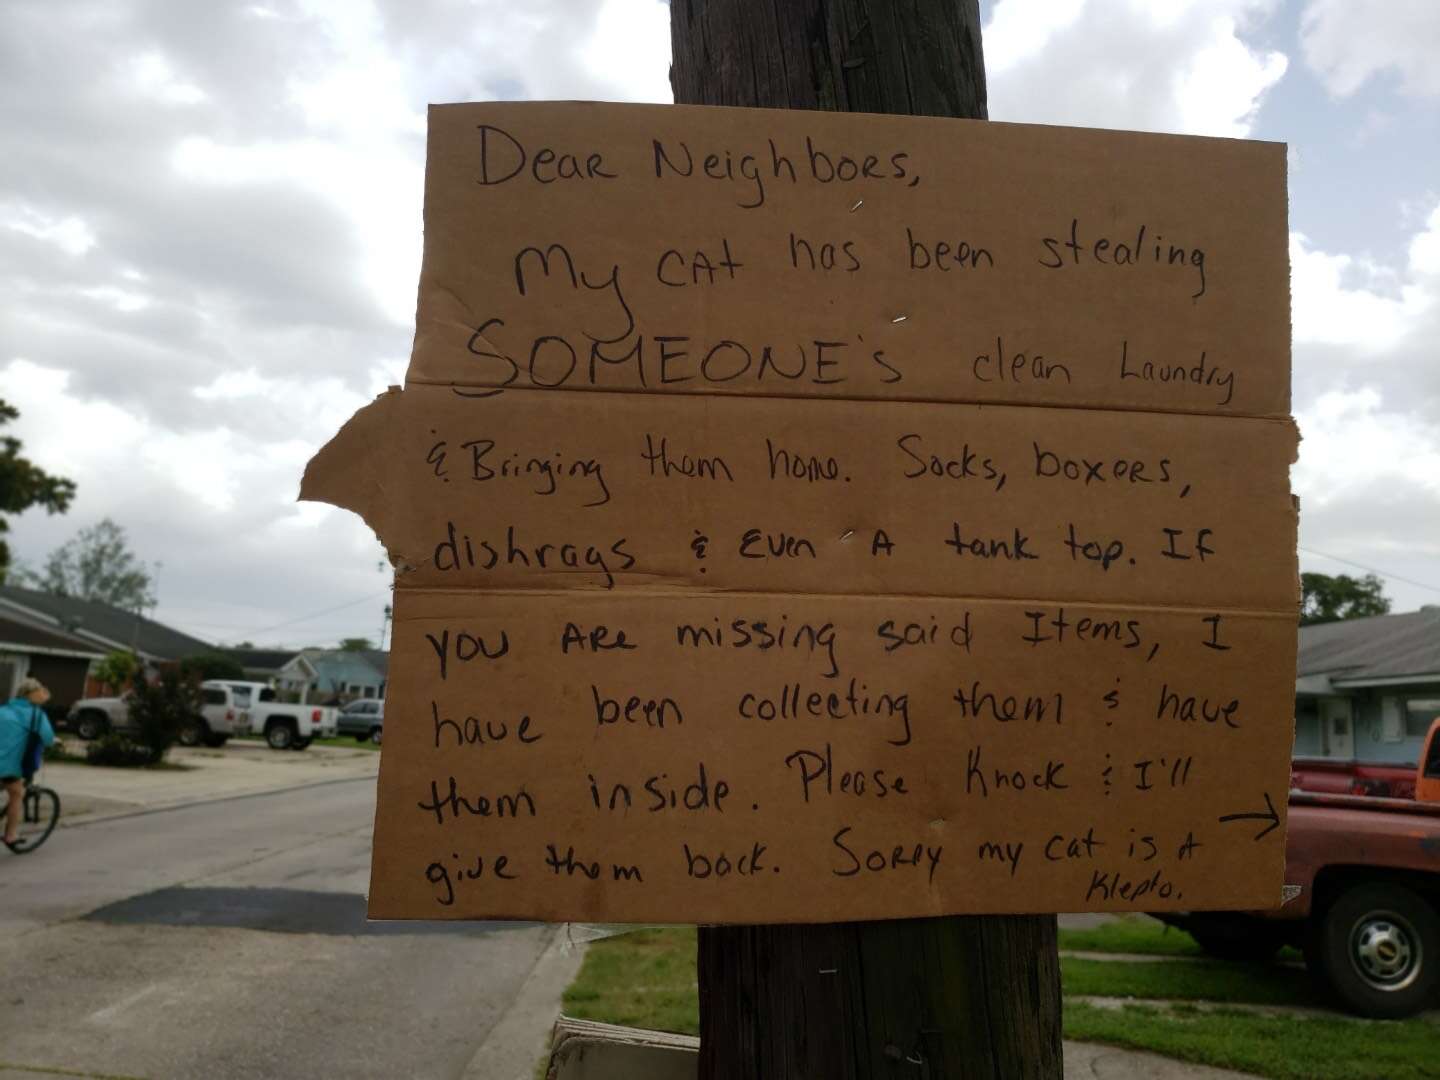 Dear Neighbors,
My cat has been stealing
SOMEONE's clean Laundry
& Bringing them home. Socks, boxers,
dishrags & Even A tank top. If
you ARE missing said Items, I
have been collecting them & have
them inside. Please Knock & I'll
give them back. Sorry my cat is A →
Klepto.